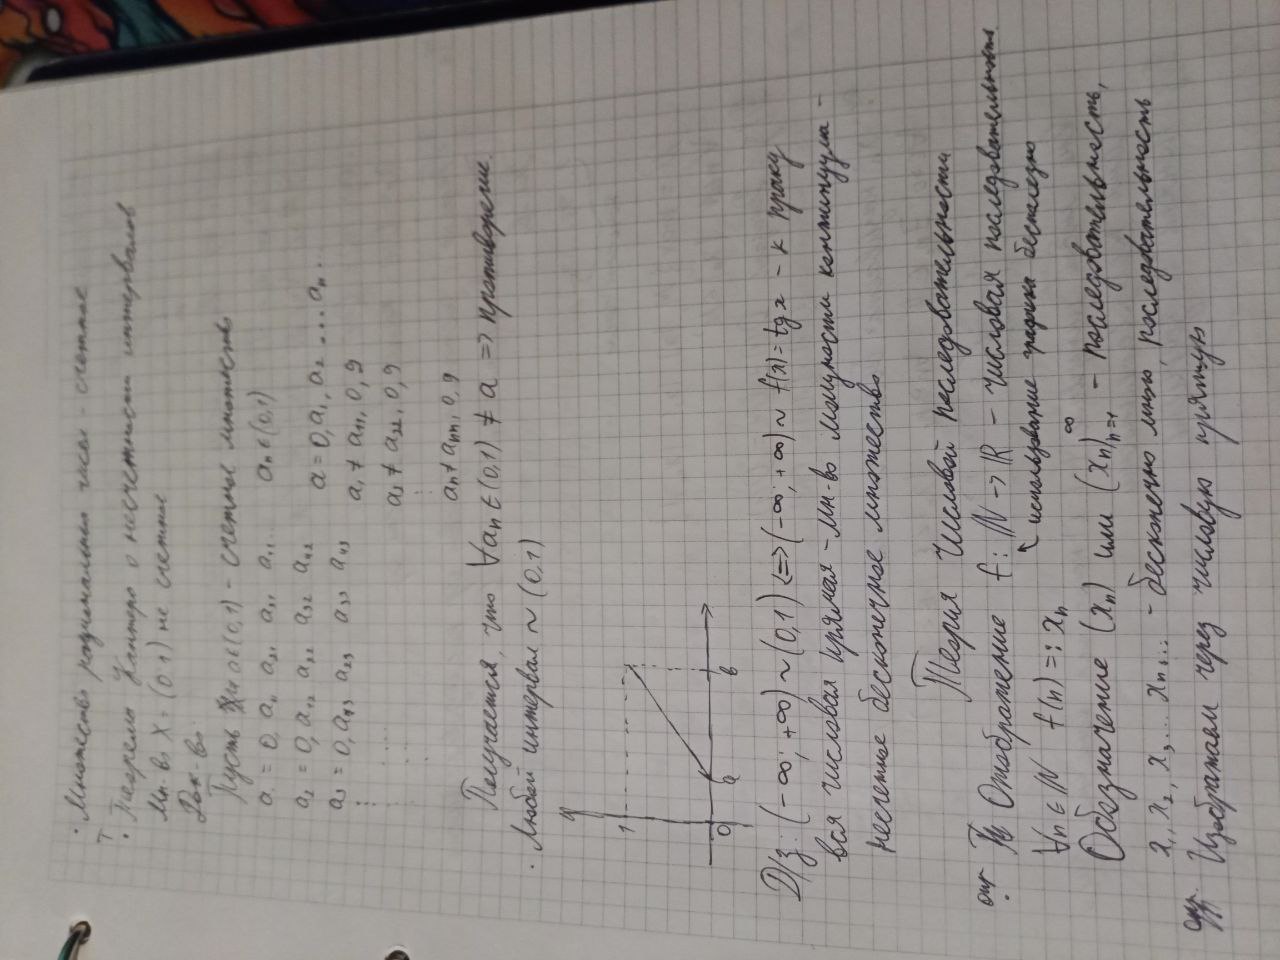 · Множество рациональных чисел - счетное
Т
· Теорема Кантора о несчетности интервалов
Мн-во X = (0,1) не счетное
Док-во:
Пусть a ∈ (0,1) - счетное множество
a₁ = 0, a₁₁ a₂₁ a₃₁ a₄₁ ... aₙ ∈ (0,1)
a₂ = 0, a₁₂ a₂₂ a₃₂ a₄₂
a = 0, a₁, a₂ ... aₙ ...
a₃ = 0, a₁₃ a₂₃ a₃₃ a₄₃
a₁ ≠ a₁₁, 0, 9
a₂ ≠ a₂₂, 0, 9
aₙ ≠ aₙₙ, 0, 9
Получается, что ∀aₙ ∈ (0,1) ≠ a => противоречие.
· Любой интервал ~ (0,1)
y
1
0 a b
Д/з: (-∞; +∞) ~ (0,1) <=> (-∞; +∞) ~ f(x) = tg x - к праку
вся числовая прямая - мн-во мощности континуума -
несчетное бесконечное множество
Теория числовой последовательности
опр. Отображение f: ℕ -> ℝ - числовая последовательность
↖ использование графика бесполезно
∀n ∈ ℕ f(n) =: xₙ
Обозначение (xₙ) или (xₙ)ₙ₌₁^∞ - последовательность,
x₁, x₂, x₃ ... xₙ, ... - бесконечно много, последовательность
Изображаем через числовую прямую